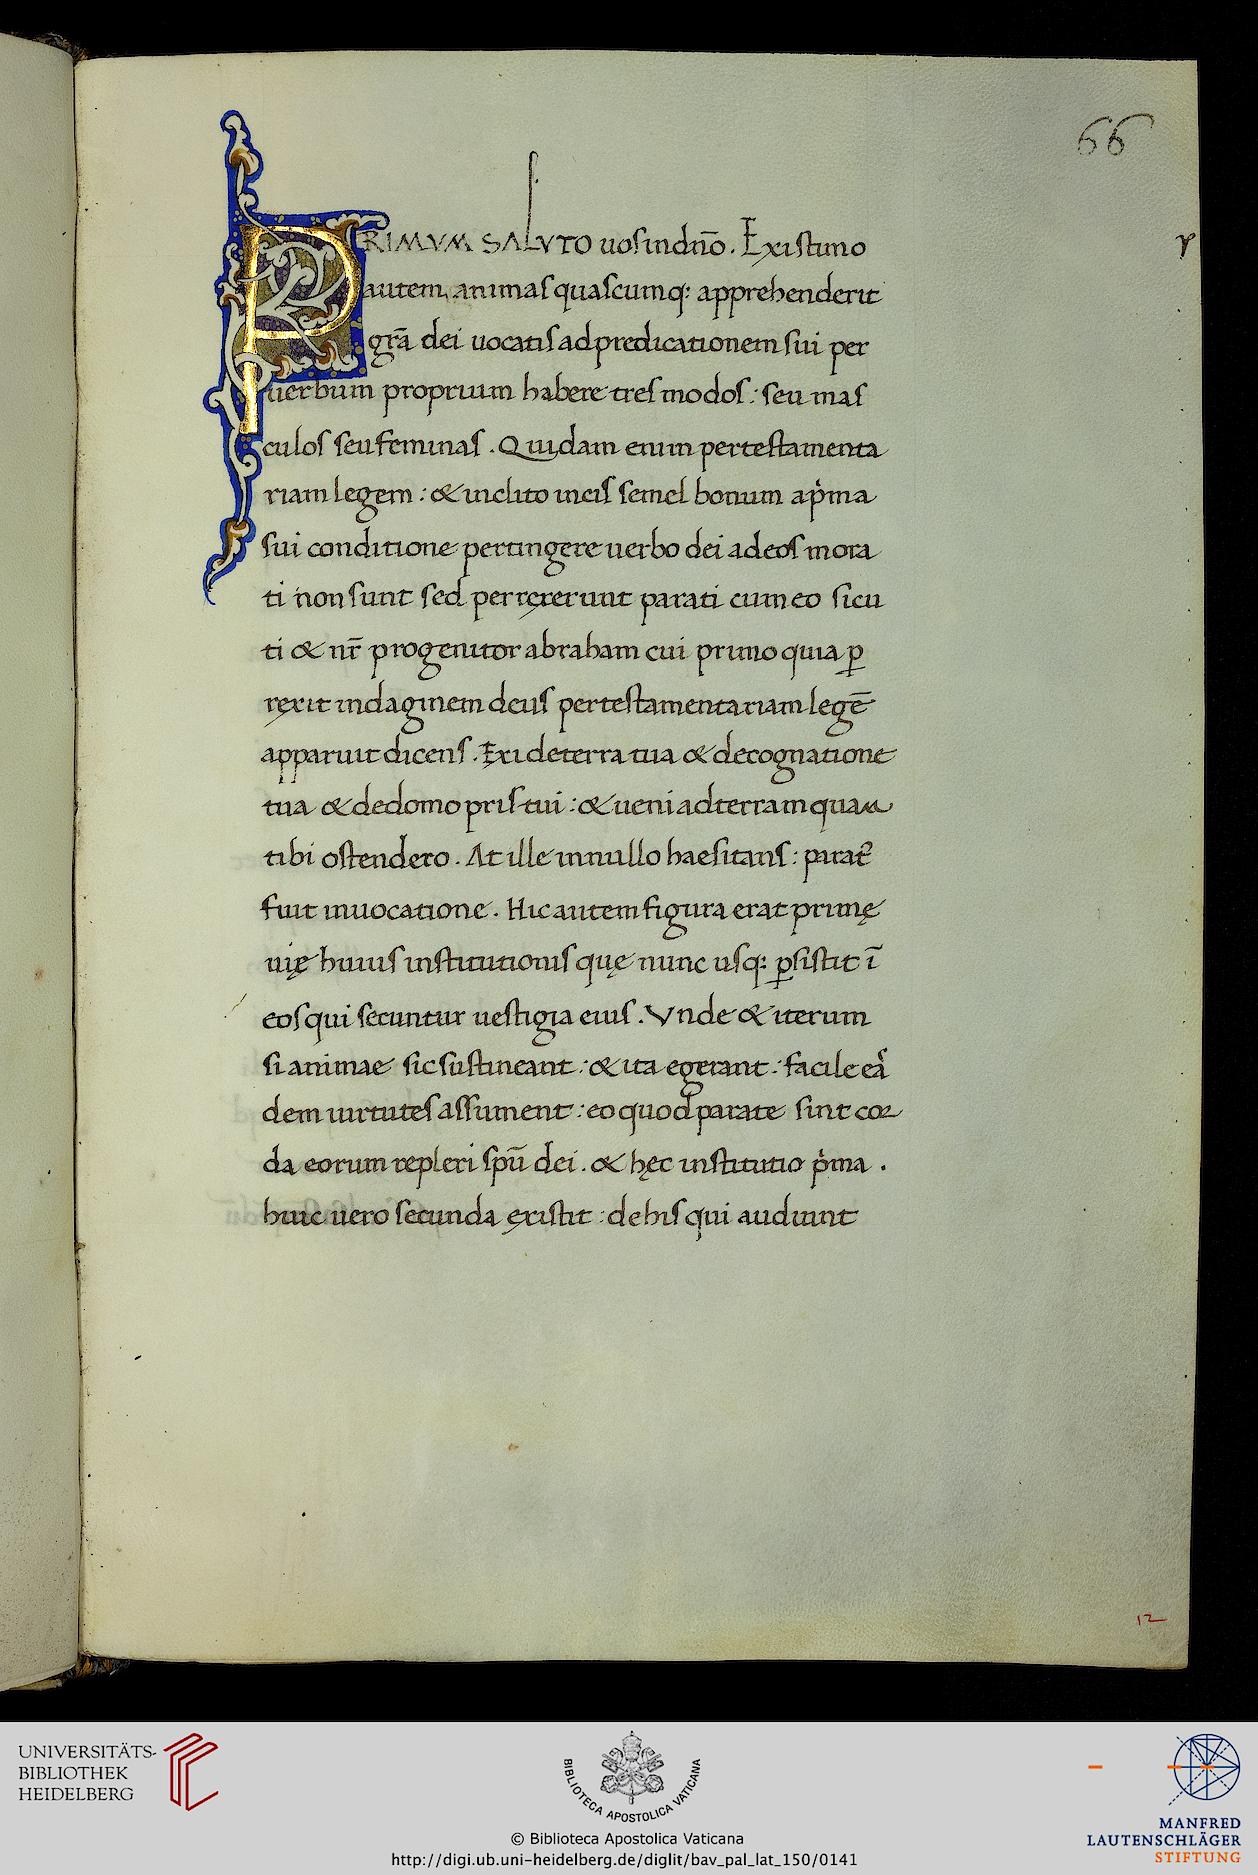 66
PRIMVM SALVTO uos in dño. Existimo
autem, animas quascumq: apprehenderit
grã dei uocatis ad predicationem sui per
uerbum proprium habere tres modos: seu mas
culos seu feminas. Quidam enim per testamenta
riam legem: & inclito in eis semel bonum a p̃ma
sui conditione pertingere uerbo dei ad eos mora
ti non sunt sed perrexerunt parati cum eo sicu
ti & nr̃ progenitor abraham cui primo quia ꝑ
rexit indaginem deus per testamentariam legẽ
apparuit dicens. Exi de terra tua & de cognatione
tua & de domo pris tui: & ueni ad terram quam
tibi ostendero. At ille in nullo haesitans: parat᷒
fuit in uocatione. Hic autem figura erat primę
uię huius institutionis quę nunc usq: ꝑsistit ĩ
eos qui secuntur uestigia eius. Vnde & iterum
si animae sic sustineant: & ita egerant: facile eã
dem uirtutes assument: eo quod parate sint cor
da eorum repleri spũ dei. & hęc institutio p̃ma.
huic uero secunda existit: de his qui audiunt
r
12
UNIVERSITÄTS-
BIBLIOTHEK
HEIDELBERG
BIBLIOTECA APOSTOLICA VATICANA
© Biblioteca Apostolica Vaticana
http://digi.ub.uni-heidelberg.de/diglit/bav_pal_lat_150/0141
MANFRED
LAUTENSCHLÄGER
STIFTUNG